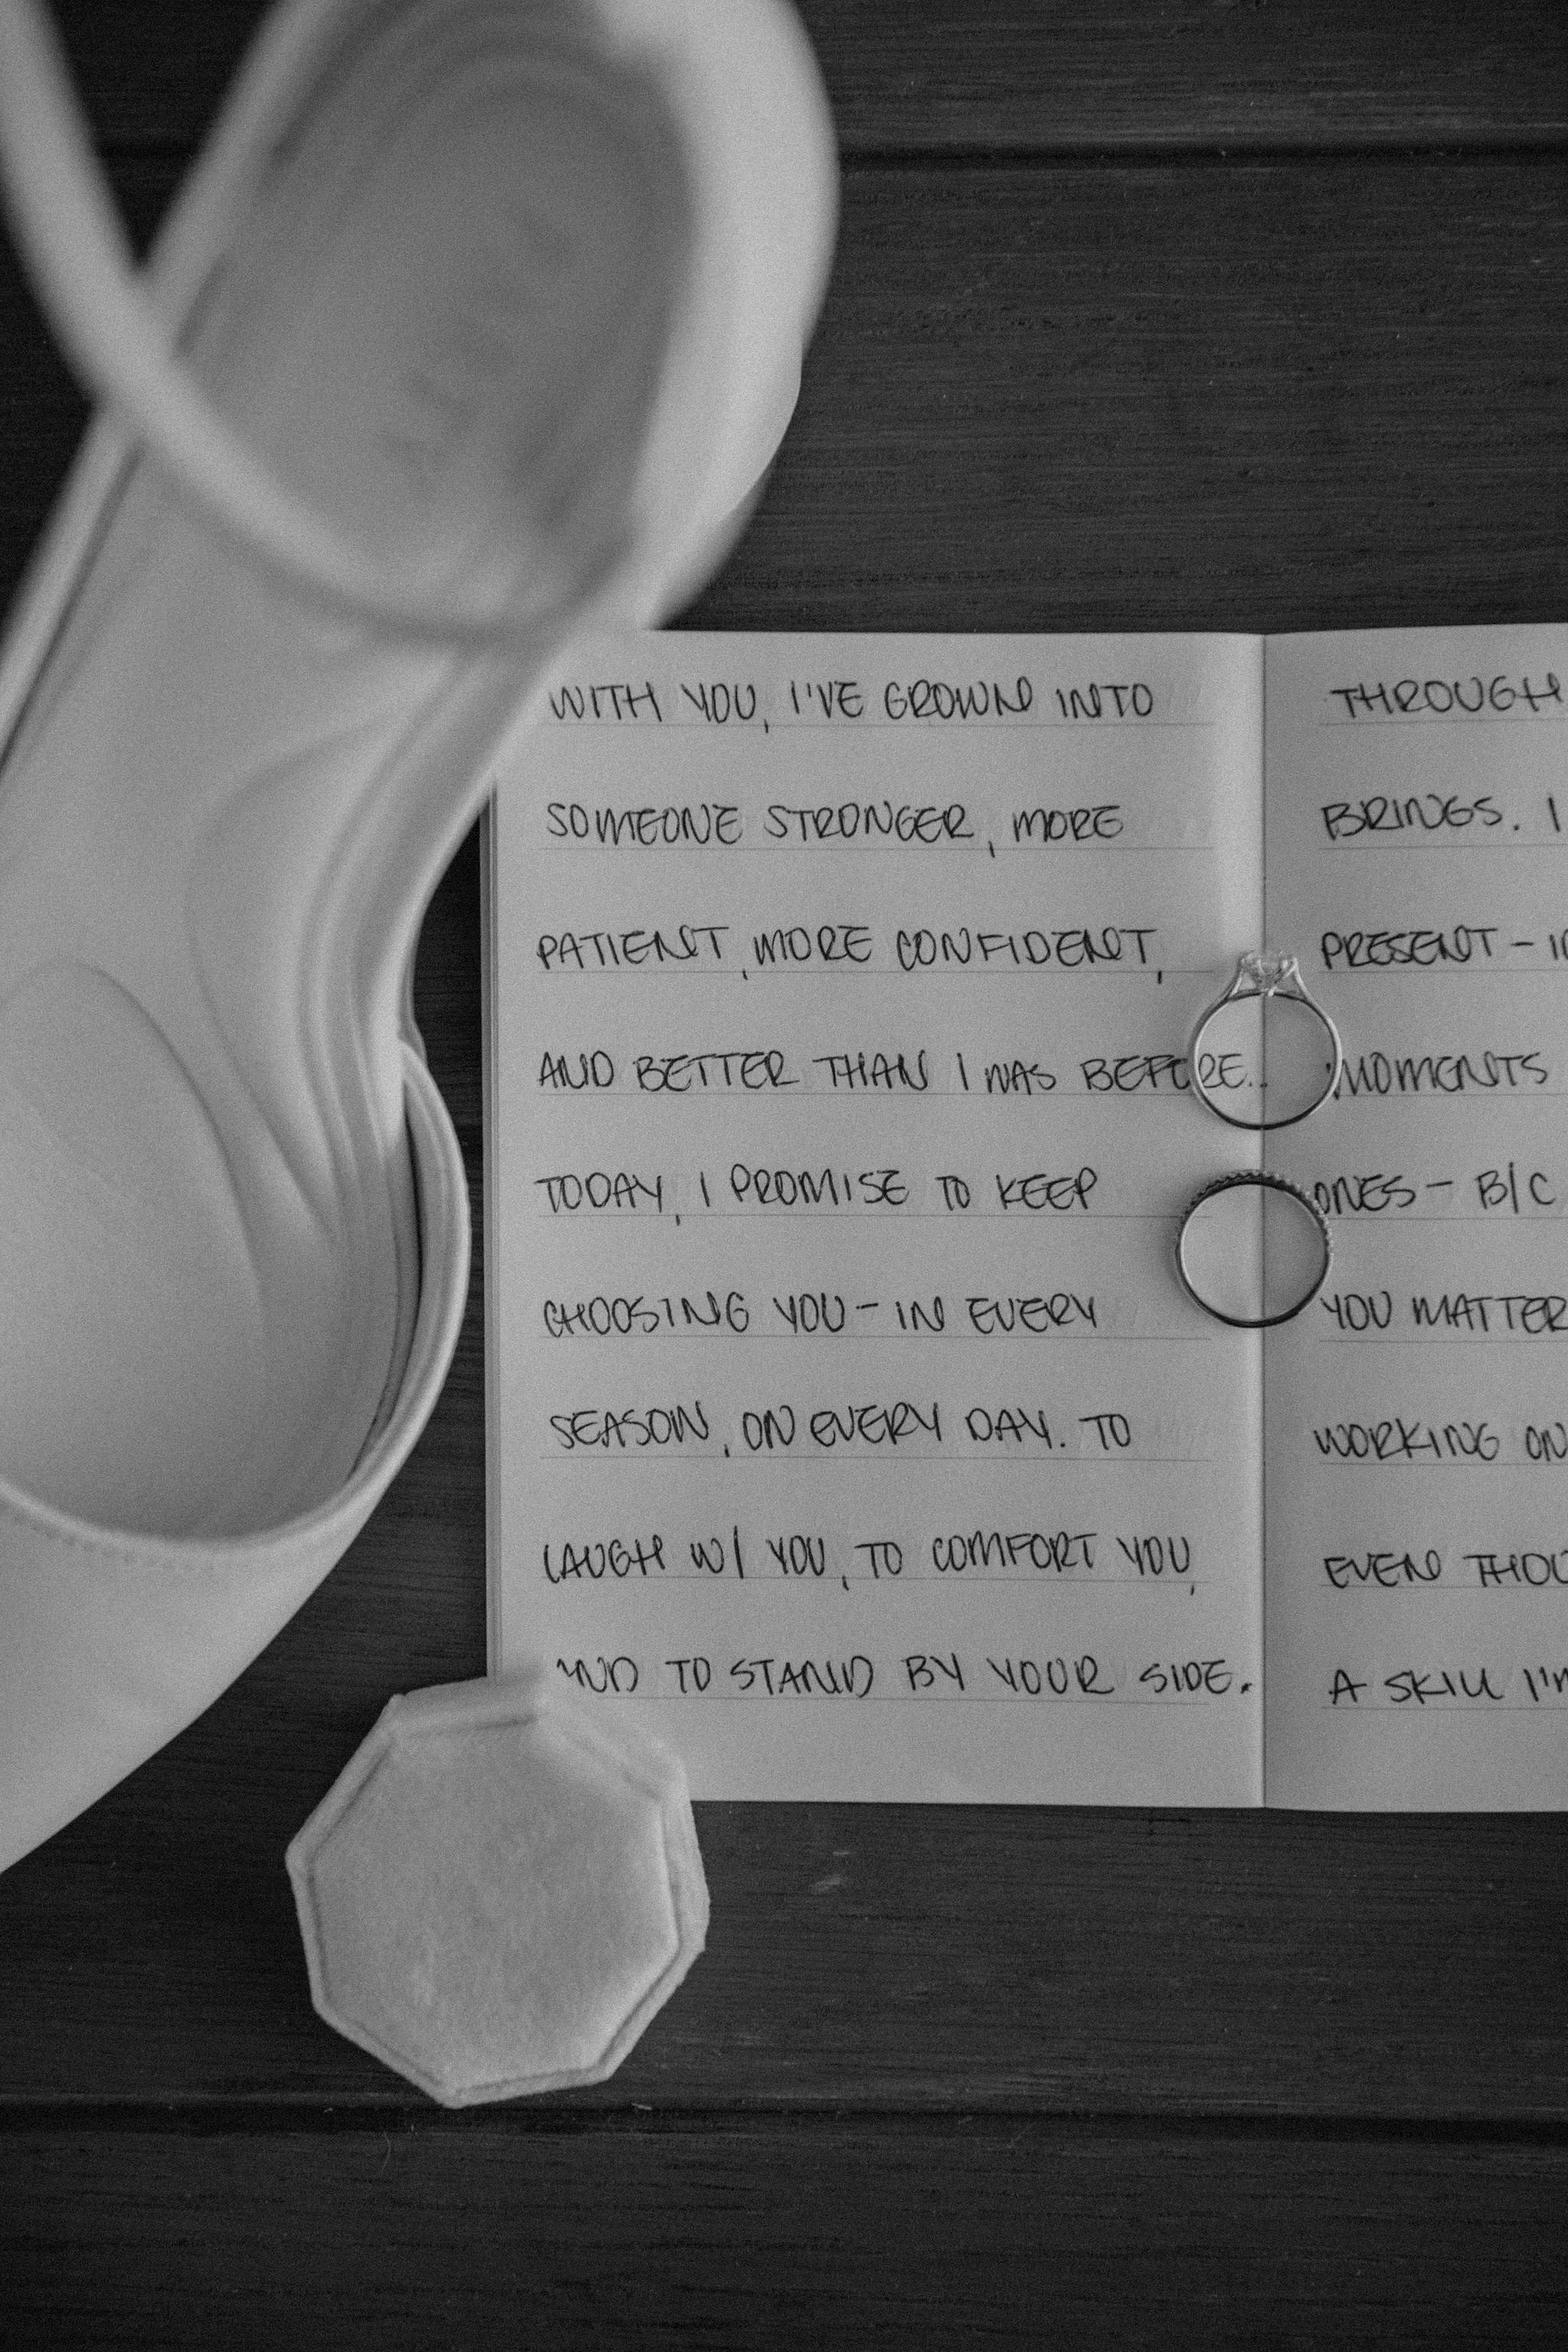 WITH YOU, I'VE GROWN INTO
SOMEONE STRONGER, MORE
PATIENT, MORE CONFIDENT,
AND BETTER THAN I WAS BEFORE.
TODAY, I PROMISE TO KEEP
CHOOSING YOU - IN EVERY
SEASON, ON EVERY DAY. TO
LAUGH W/ YOU, TO COMFORT YOU,
AND TO STAND BY YOUR SIDE.
THROUGH
BRINGS. I
PRESENT -
MOMENTS
ONES - B/C
YOU MATTER
WORKING ON
EVEN
A SKILL